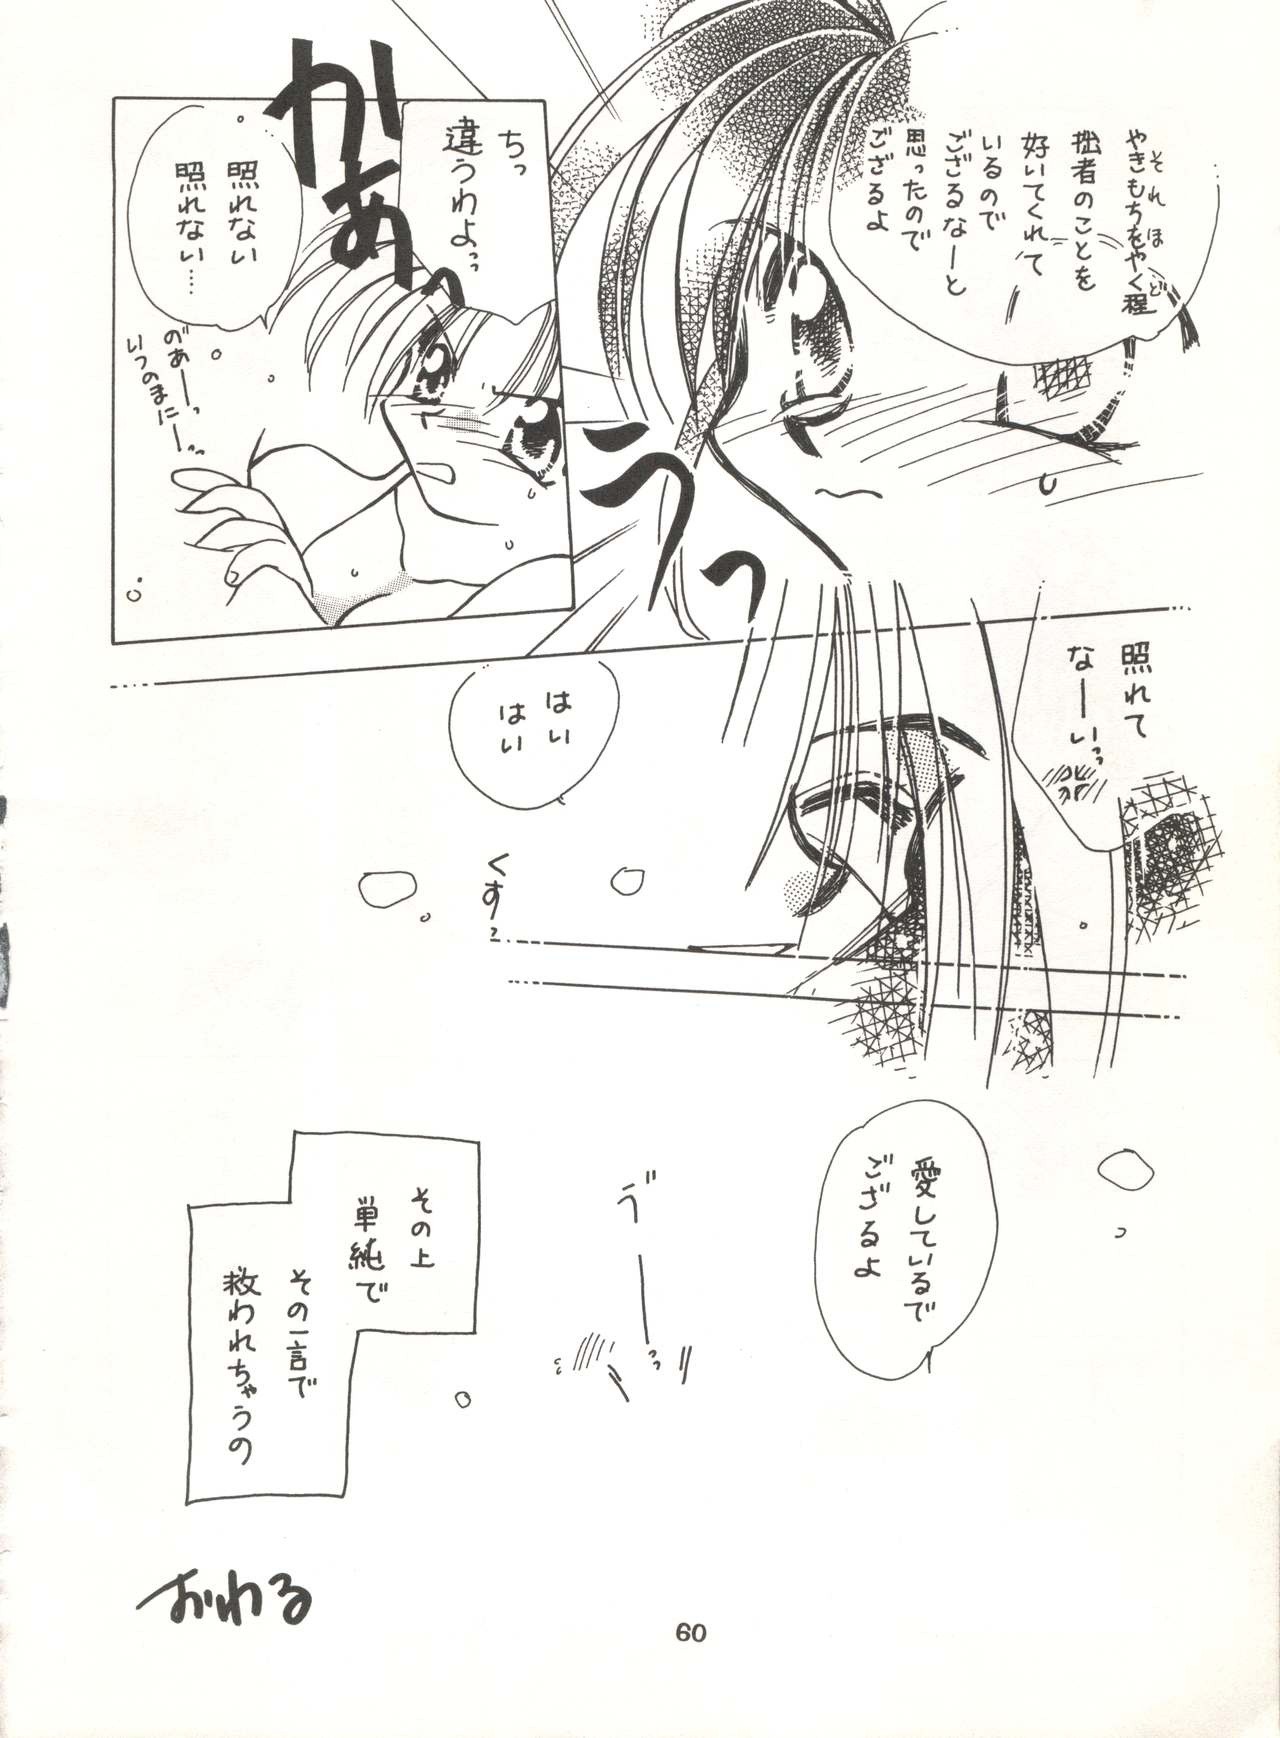 やきもちをやく程
それほど
拙者のことを
好いてくれて
いるので
ござるなーと
思ったので
ござるよ
うっ
ちっ
違うわよっっ
かあぁ
照れない
照れない…
のあーっ
いつのまにーっっ
照れて
なーいっっ
はい
はい
くすっ
愛しているで
ござるよ
ゔーっ
その上
単純で
その一言で
救われちゃうの
おわる
60